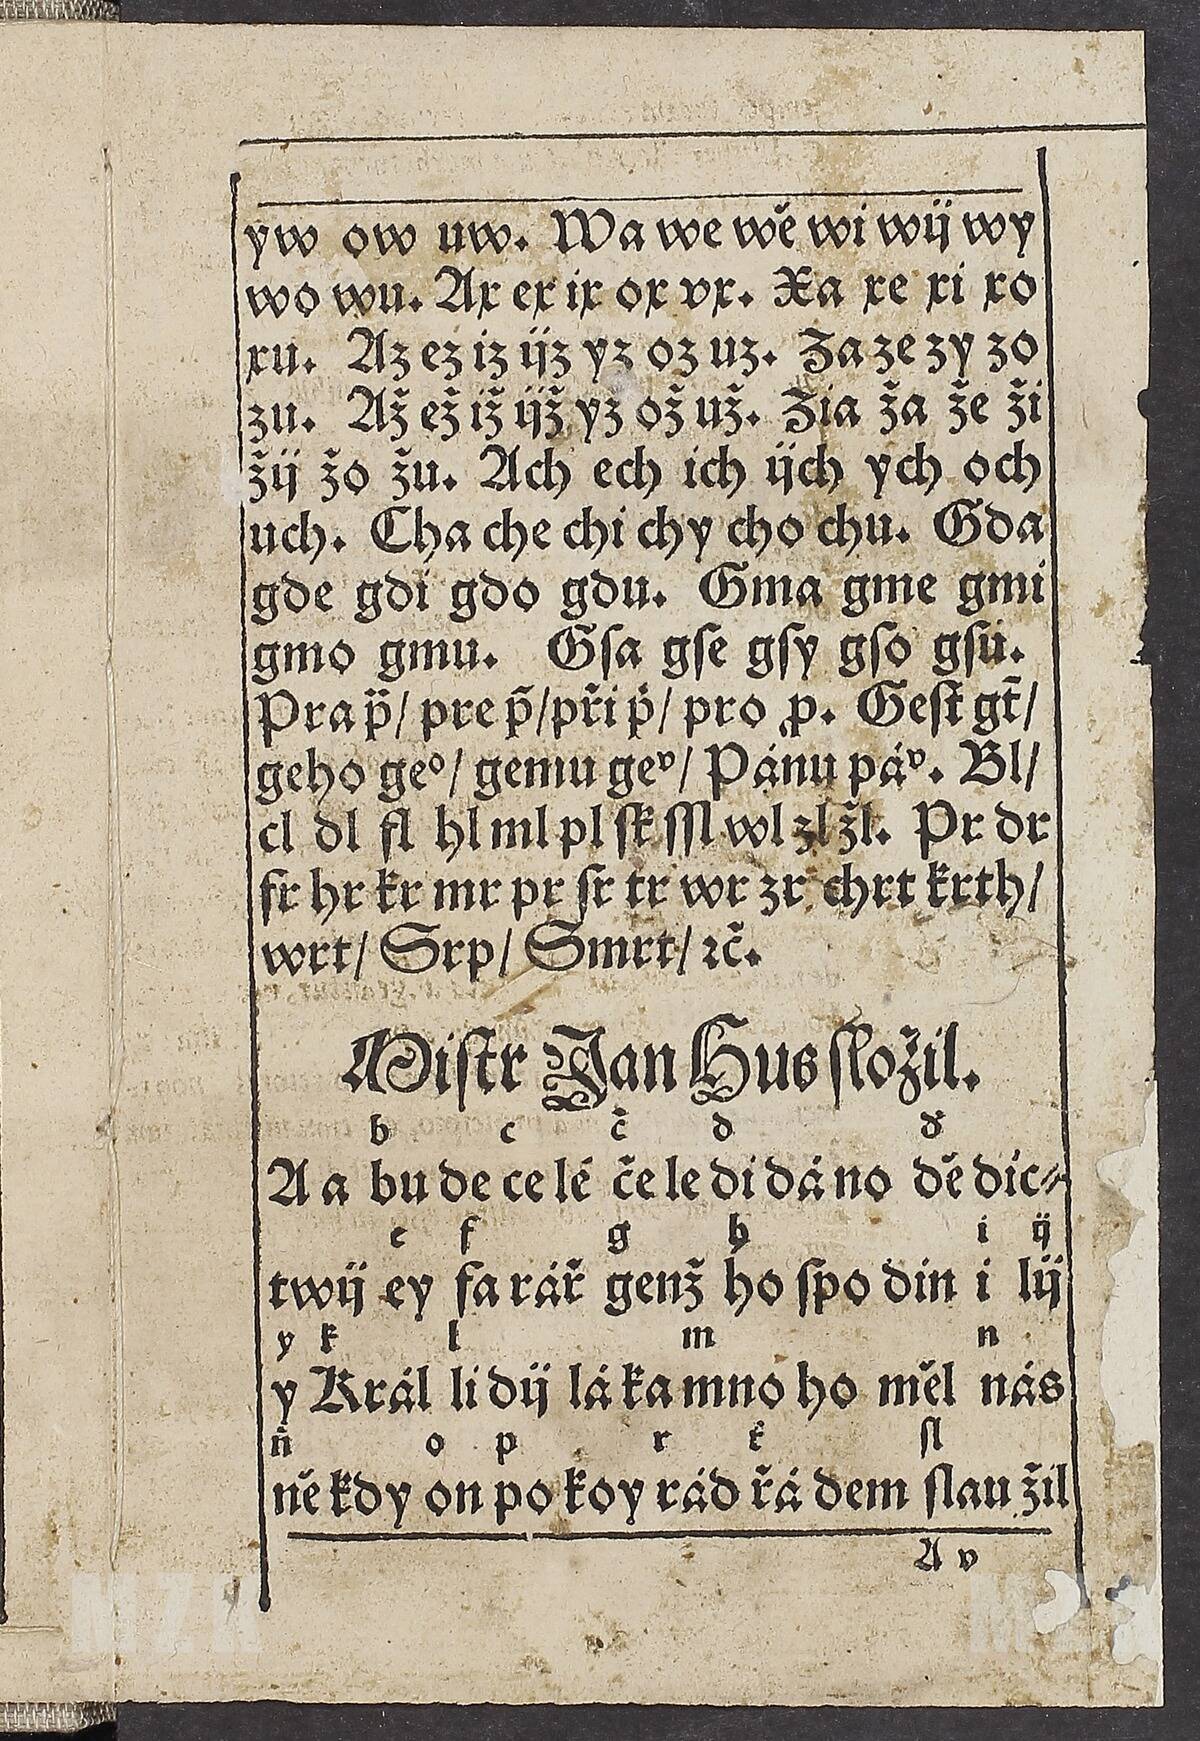 yw ow uw. Wa we wě wi wij wy
wo wu. Ax ex ix ox vx. Xa xe xi xo
xu. Az ez iz ijz yz oz uz. Za ze zy zo
zu. Až ež iž ijž yž ož už. Žia ža že ži
žij žo žu. Ach ech ich ijch ych och
uch. Cha che chi chy cho chu. Gda
gde gdi gdo gdu. Gma gme gmi
gmo gmu. Gſa gſe gſy gſo gſu.
Pra p̈/ pre p̃/ při ṗ/ pro ꝓ. Geſt gt̃/
geho geᵒ/ gemu geᵛ/ Pánu páᵛ. Bl/
cl dl fl hl ml pl ſk ſſl wl zl žl. Pr dr
fr hr kr mr pr ſr tr wr zr chrt krth/
wrt/ Srp/ Smrt/ ꝛč.
Miſtr Jan Hus ſložil.
b c č d ď
A a bu de ce lé če le di dá no dě dic⸗
e f g h i ij
twij ey fa rář genž ho ſpo din i lij
y k l m n
y Král li dij lá ka mno ho měl nás
ň o p r ř ſl
ně kdy on po koy rád řá dem ſlau žil
A v